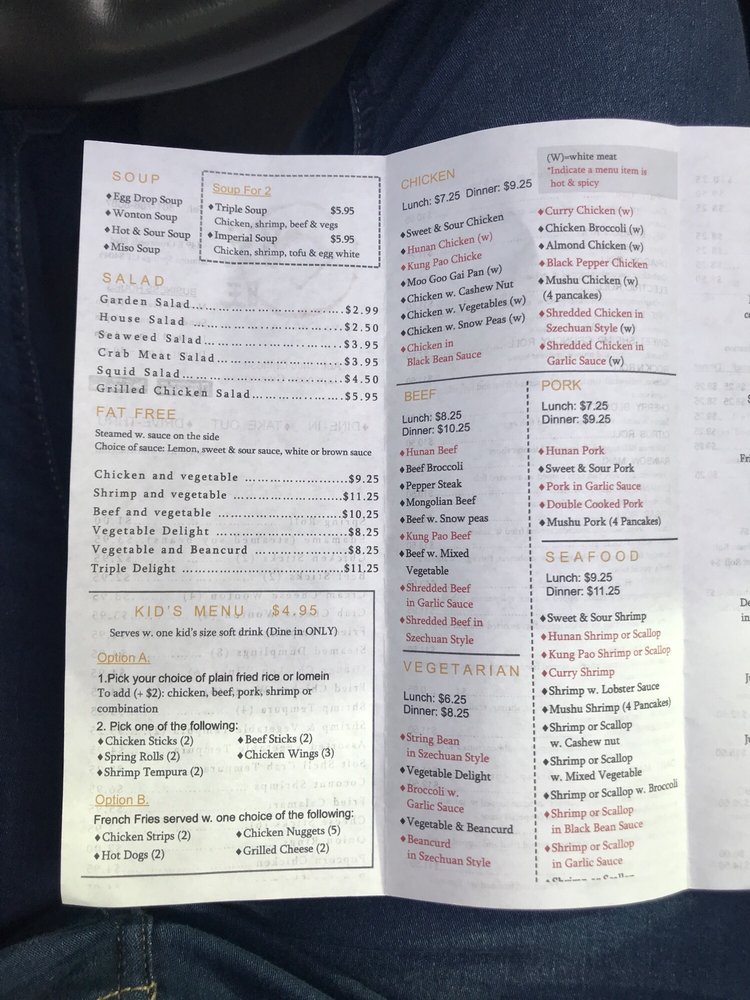 SOUP
♦Egg Drop Soup
♦Wonton Soup
♦Hot & Sour Soup
♦Miso Soup
Soup For 2
♦Triple Soup $5.95
Chicken, shrimp, beef & vegs
♦Imperial Soup $5.95
Chicken, shrimp, tofu & egg white
SALAD
Garden Salad........................$2.99
House Salad ........................$2.50
Seaweed Salad.......................$3.95
Crab Meat Salad.....................$3.95
Squid Salad.........................$4.50
Grilled Chicken Salad...............$5.95
FAT FREE
Steamed w. sauce on the side
Choice of sauce: Lemon, sweet & sour sauce, white or brown sauce
Chicken and vegetable ........................$9.25
Shrimp and vegetable ........................$11.25
Beef and vegetable ..........................$10.25
Vegetable Delight ............................$8.25
Vegetable and Beancurd .......................$8.25
Triple Delight ..............................$11.25
KID'S MENU $4.95
Serves w. one kid's size soft drink (Dine in ONLY)
Option A.
1.Pick your choice of plain fried rice or lomein
To add (+ $2): chicken, beef, pork, shrimp or
combination
2. Pick one of the following:
♦Chicken Sticks (2) ♦Beef Sticks (2)
♦Spring Rolls (2) ♦Chicken Wings (3)
♦Shrimp Tempura (2)
Option B.
French Fries served w. one choice of the following:
♦Chicken Strips (2) ♦Chicken Nuggets (5)
♦Hot Dogs (2) ♦Grilled Cheese (2)
CHICKEN
Lunch: $7.25 Dinner: $9.25
♦Sweet & Sour Chicken
♦Hunan Chicken (w)
♦Kung Pao Chicke
♦Moo Goo Gai Pan (w)
♦Chicken w. Cashew Nut
♦Chicken w. Vegetables (w)
♦Chicken w. Snow Peas (w)
♦Chicken in
Black Bean Sauce
(W)=white meat
*Indicate a menu item is
hot & spicy
♦Curry Chicken (w)
♦Chicken Broccoli (w)
♦Almond Chicken (w)
♦Black Pepper Chicken
♦Mushu Chicken (w)
(4 pancakes)
♦Shredded Chicken in
Szechuan Style (w)
♦Shredded Chicken in
Garlic Sauce (w)
BEEF
Lunch: $8.25
Dinner: $10.25
♦Hunan Beef
♦Beef Broccoli
♦Pepper Steak
♦Mongolian Beef
♦Beef w. Snow peas
♦Kung Pao Beef
♦Beef w. Mixed
Vegetable
♦Shredded Beef
in Garlic Sauce
♦Shredded Beef in
Szechuan Style
VEGETARIAN
Lunch: $6.25
Dinner: $8.25
♦String Bean
in Szechuan Style
♦Vegetable Delight
♦Broccoli w.
Garlic Sauce
♦Vegetable & Beancurd
♦Beancurd
in Szechuan Style
PORK
Lunch: $7.25
Dinner: $9.25
♦Hunan Pork
♦Sweet & Sour Pork
♦Pork in Garlic Sauce
♦Double Cooked Pork
♦Mushu Pork (4 Pancakes)
SEAFOOD
Lunch: $9.25
Dinner: $11.25
♦Sweet & Sour Shrimp
♦Hunan Shrimp or Scallop
♦Kung Pao Shrimp or Scallop
♦Curry Shrimp
♦Shrimp w. Lobster Sauce
♦Mushu Shrimp (4 Pancakes)
♦Shrimp or Scallop
w. Cashew nut
♦Shrimp or Scallop
w. Mixed Vegetable
♦Shrimp or Scallop w. Broccoli
♦Shrimp or Scallop
in Black Bean Sauce
♦Shrimp or Scallop
in Garlic Sauce